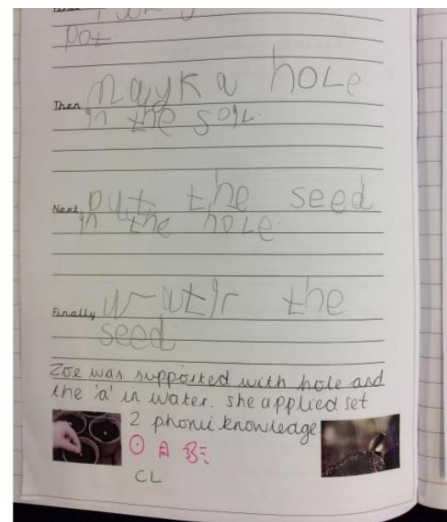 pot
Then mayk a hole
in the soil.
Next put the seed
in the hole.
Finally watir the
seed
Zoe was supported with hole and
the 'a' in water. she applied set
2 phonic knowledge
CL